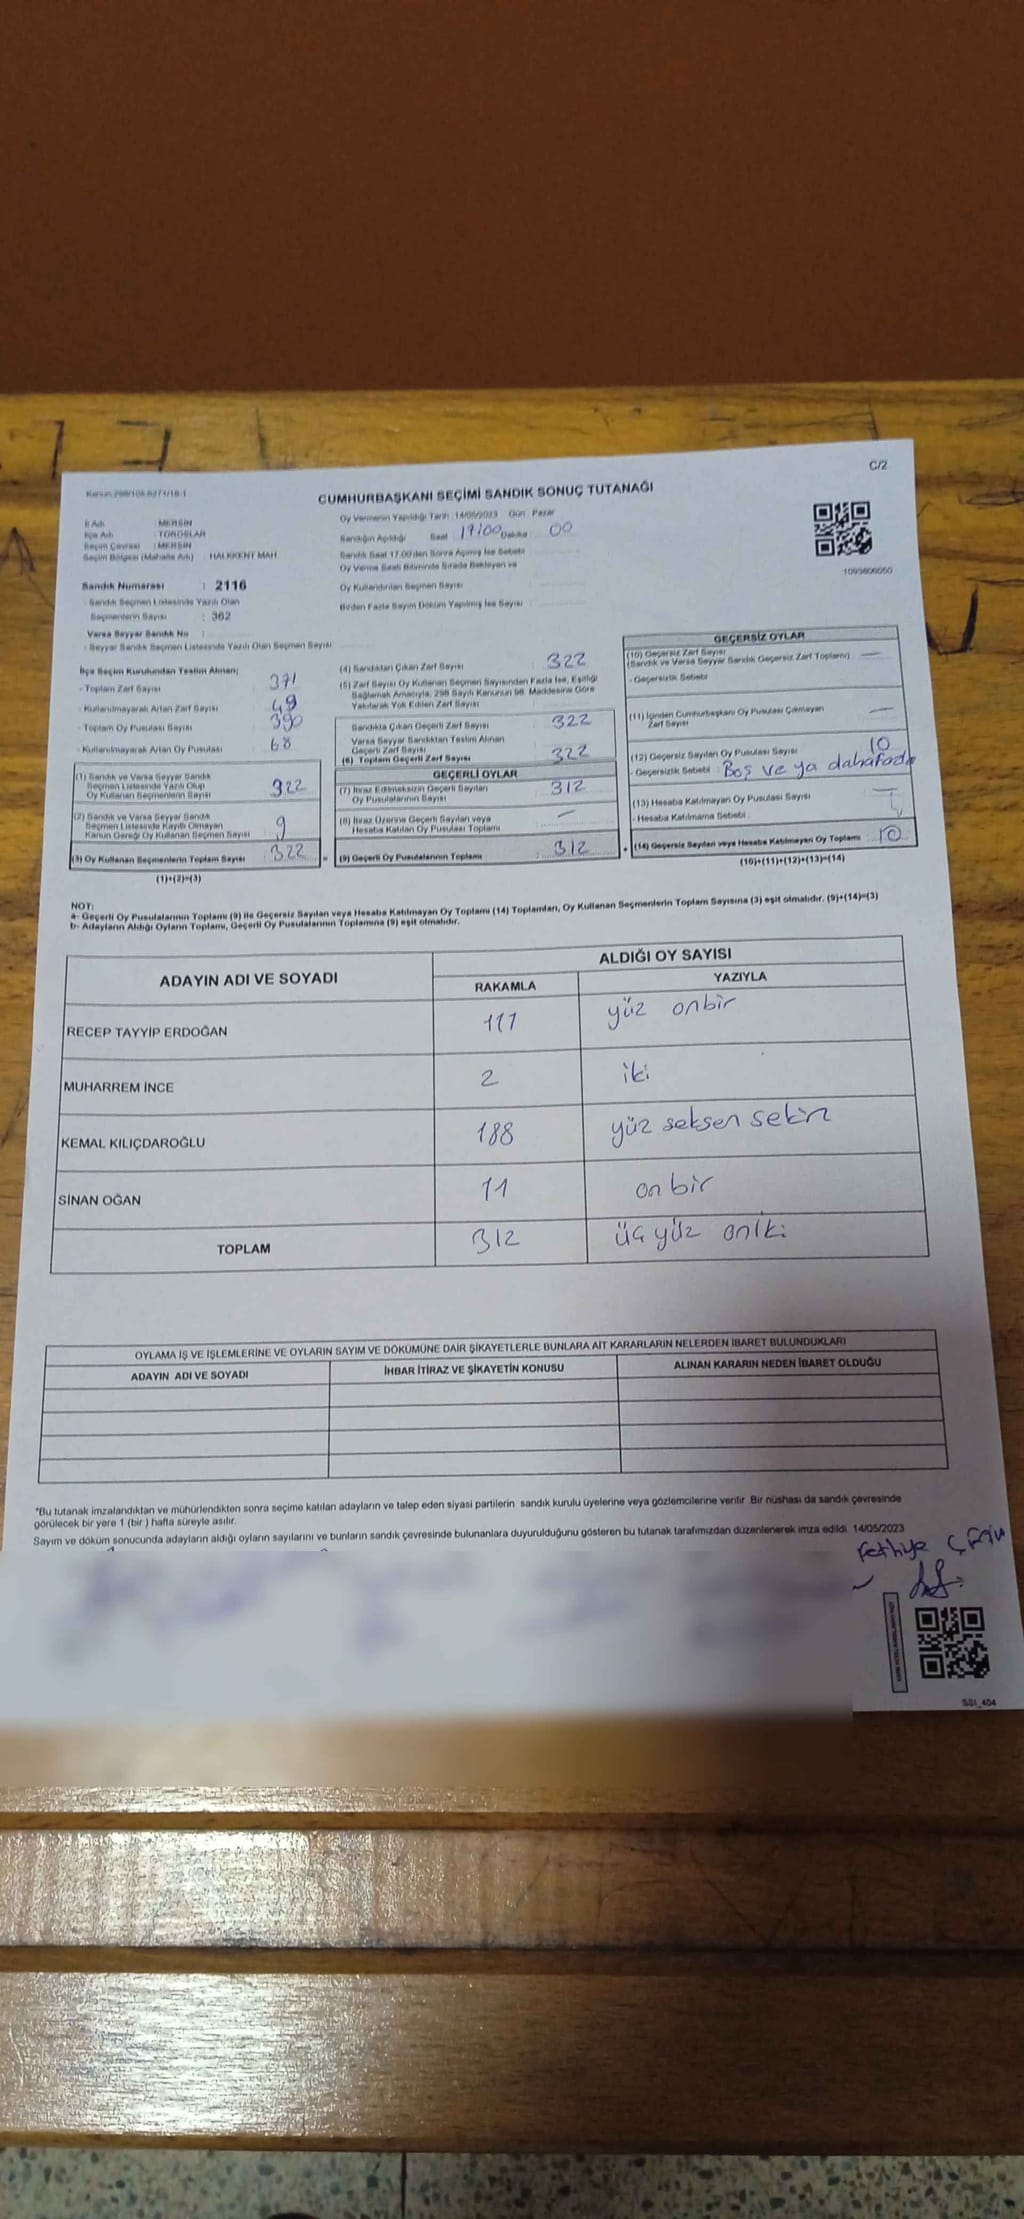 C/2
CUMHURBAŞKANI SEÇİMİ SANDIK SONUÇ TUTANAĞI
İl Adı : MERSİN
İlçe Adı : TOROSLAR
Seçim Çevresi : MERSİN
Seçim Bölgesi (Mahalle Adı) : HALKKENT MAH
Sandık Numarası : 2116
Sandık Seçmen Listesinde Yazılı Olan
Seçmenlerin Sayısı : 362
Varsa Seyyar Sandık No :
- Seyyar Sandık Seçmen Listesinde Yazılı Olan Seçmen Sayısı :
Oy Vermenin Yapıldığı Tarih : 14/05/2023 Gün : Pazar
Sandığın Açıldığı Saat 17:00 Dakika 00
Sandık Saat 17.00'den Sonra Açılmış İse Sebebi :
Oy Verme Saati Bitiminde Sırada Bekleyen ve
Oy Kullandırılan Seçmen Sayısı :
Birden Fazla Sayım Döküm Yapılmış İse Sayısı :
1093606050
İlçe Seçim Kurulundan Teslim Alınan;
- Toplam Zarf Sayısı : 371
- Kullanılmayarak Artan Zarf Sayısı : 49
- Toplam Oy Pusulası Sayısı : 390
- Kullanılmayarak Artan Oy Pusulası : 68
(1) Sandık ve Varsa Seyyar Sandık
Seçmen Listesinde Yazılı Olup
Oy Kullanan Seçmenlerin Sayısı : 322
(2) Sandık ve Varsa Seyyar Sandık
Seçmen Listesinde Kayıtlı Olmayan
Kanun Gereği Oy Kullanan Seçmen Sayısı : 9
(3) Oy Kullanan Seçmenlerin Toplam Sayısı : 322
(1)+(2)=(3)
(4) Sandıktan Çıkan Zarf Sayısı : 322
(5) Zarf Sayısı Oy Kullanan Seçmen Sayısından Fazla İse, Eşitliği
Sağlamak Amacıyla, 298 Sayılı Kanunun 98. Maddesine Göre
Yakılarak Yok Edilen Zarf Sayısı :
Sandıkta Çıkan Geçerli Zarf Sayısı : 322
Varsa Seyyar Sandıktan Teslim Alınan
Geçerli Zarf Sayısı :
(6) Toplam Geçerli Zarf Sayısı : 322
GEÇERLİ OYLAR
(7) İtiraz Edilmeksizin Geçerli Sayılan
Oy Pusulalarının Sayısı : 312
(8) İtiraz Üzerine Geçerli Sayılan veya
Hesaba Katılan Oy Pusulası Toplamı : —
(9) Geçerli Oy Pusulalarının Toplamı : 312
GEÇERSİZ OYLAR
(10) Geçersiz Zarf Sayısı : —
(Sandık ve Varsa Seyyar Sandık Geçersiz Zarf Toplamı)
- Geçersizlik Sebebi :
(11) İçinden Cumhurbaşkanı Oy Pusulası Çıkmayan
Zarf Sayısı : —
(12) Geçersiz Sayılan Oy Pusulası Sayısı : 10
- Geçersizlik Sebebi : Boş ve ya daha fazla
(13) Hesaba Katılmayan Oy Pusulası Sayısı : —
- Hesaba Katılmama Sebebi :
(14) Geçersiz Sayılan veya Hesaba Katılmayan Oy Toplamı : 10
(10)+(11)+(12)+(13)=(14)
NOT:
a- Geçerli Oy Pusulalarının Toplamı (9) ile Geçersiz Sayılan veya Hesaba Katılmayan Oy Toplamı (14) Toplamları, Oy Kullanan Seçmenlerin Toplam Sayısına (3) eşit olmalıdır. (9)+(14)=(3)
b- Adayların Aldığı Oyların Toplamı, Geçerli Oy Pusulalarının Toplamına (9) eşit olmalıdır.
ADAYIN ADI VE SOYADI
ALDIĞI OY SAYISI
RAKAMLA YAZIYLA
RECEP TAYYİP ERDOĞAN 111 yüz onbir
MUHARREM İNCE 2 iki
KEMAL KILIÇDAROĞLU 188 yüz seksen sekiz
SİNAN OĞAN 11 on bir
TOPLAM 312 üç yüz oniki
OYLAMA İŞ VE İŞLEMLERİNE VE OYLARIN SAYIM VE DÖKÜMÜNE DAİR ŞİKAYETLERLE BUNLARA AİT KARARLARIN NELERDEN İBARET BULUNDUKLARI
ADAYIN ADI VE SOYADI İHBAR İTİRAZ VE ŞİKAYETİN KONUSU ALINAN KARARIN NEDEN İBARET OLDUĞU
*Bu tutanak imzalandıktan ve mühürlendikten sonra seçime katılan adayların ve talep eden siyasi partilerin sandık kurulu üyelerine veya gözlemcilerine verilir. Bir nüshası da sandık çevresinde
görülecek bir yere 1 (bir) hafta süreyle asılır.
Sayım ve döküm sonucunda adayların aldığı oyların sayılarını ve bunların sandık çevresinde bulunanlara duyurulduğunu gösteren bu tutanak tarafımızdan düzenlenerek imza edildi. 14/05/2023
Fethiye
SSI_404